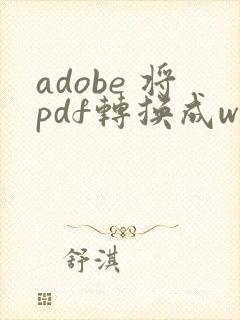 adobe 將
pdf轉換成w
舒淇